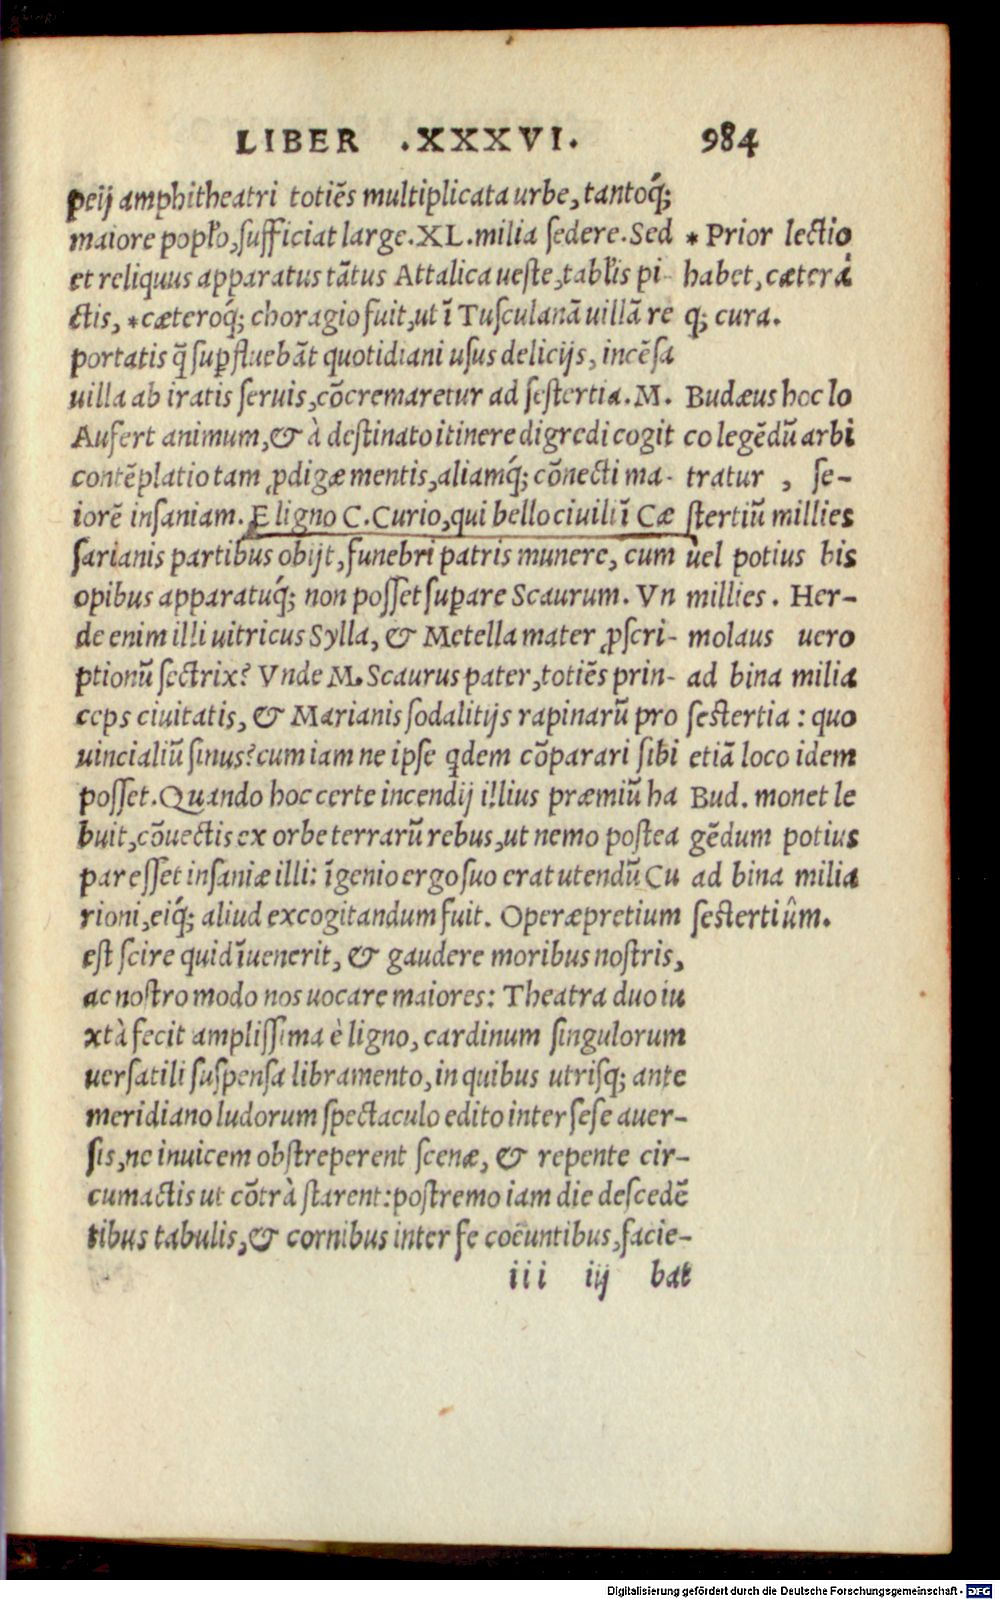 LIBER .XXXVI. 984
peij amphitheatri totiẽs multiplicata urbe, tantoq́;
maiore popło, sufficiat large. XL. milia sedere. Sed
et reliquus apparatus tãtus Attalica ueste, tabłis pi-
ctis, *cæteroq́; choragio fuit, ut ĩ Tusculanã uillã re
portatis q̃ supfluebãt quotidiani usus delicijs, incẽsa
uilla ab iratis seruis, cõcremaretur ad sestertia. M.
Aufert animum, & à destinato itinere digredi cogit
contẽplatio tam ꝓdigæ mentis, aliamq́; cõnecti ma-
iorẽ insaniam. E ligno C. Curio, qui bello ciuili ĩ Cæ
sarianis partibus obijt, funebri patris munere, cum
opibus apparatuq́; non posset supare Scaurum. Vn
de enim illi uitricus Sylla, & Metella mater ꝓscri-
ptionũ sectrix? Vnde M. Scaurus pater, totiẽs prin-
ceps ciuitatis, & Marianis sodalitijs rapinarũ pro
uincialiũ sinus? cum iam ne ipse qdem cõparari sibi
posset. Quando hoc certe incendij illius præmiũ ha
buit, cõuectis ex orbe terrarũ rebus, ut nemo postea
par esset insaniæ illi: ĩgenio ergo suo erat utendũ Cu
rioni, eiq́; aliud excogitandum fuit. Operæpretium
est scire quid ĩuenerit, & gaudere moribus nostris,
ac nostro modo nos uocare maiores: Theatra duo iu
xtà fecit amplissima è ligno, cardinum singulorum
uersatili suspensa libramento, in quibus utrisq; ante
meridiano ludorum spectaculo edito inter sese auer-
sis, ne inuicem obstreperent scenæ, & repente cir-
cumactis ut cõtrà starent: postremo iam die descedẽ
tibus tabulis, & cornibus inter se coëuntibus, facie-
iii iij bat
* Prior lectio
habet, cæterâ
q; cura.
Budæus hoc lo
co legẽdũ arbi
tratur, se-
stertiũ millies
uel potius bis
millies. Her-
molaus uero
ad bina milia
sestertia: quo
etiã loco idem
Bud. monet le
gẽdum potius
ad bina milia
sestertiûm.
Digitalisierung gefördert durch die Deutsche Forschungsgemeinschaft - DFG